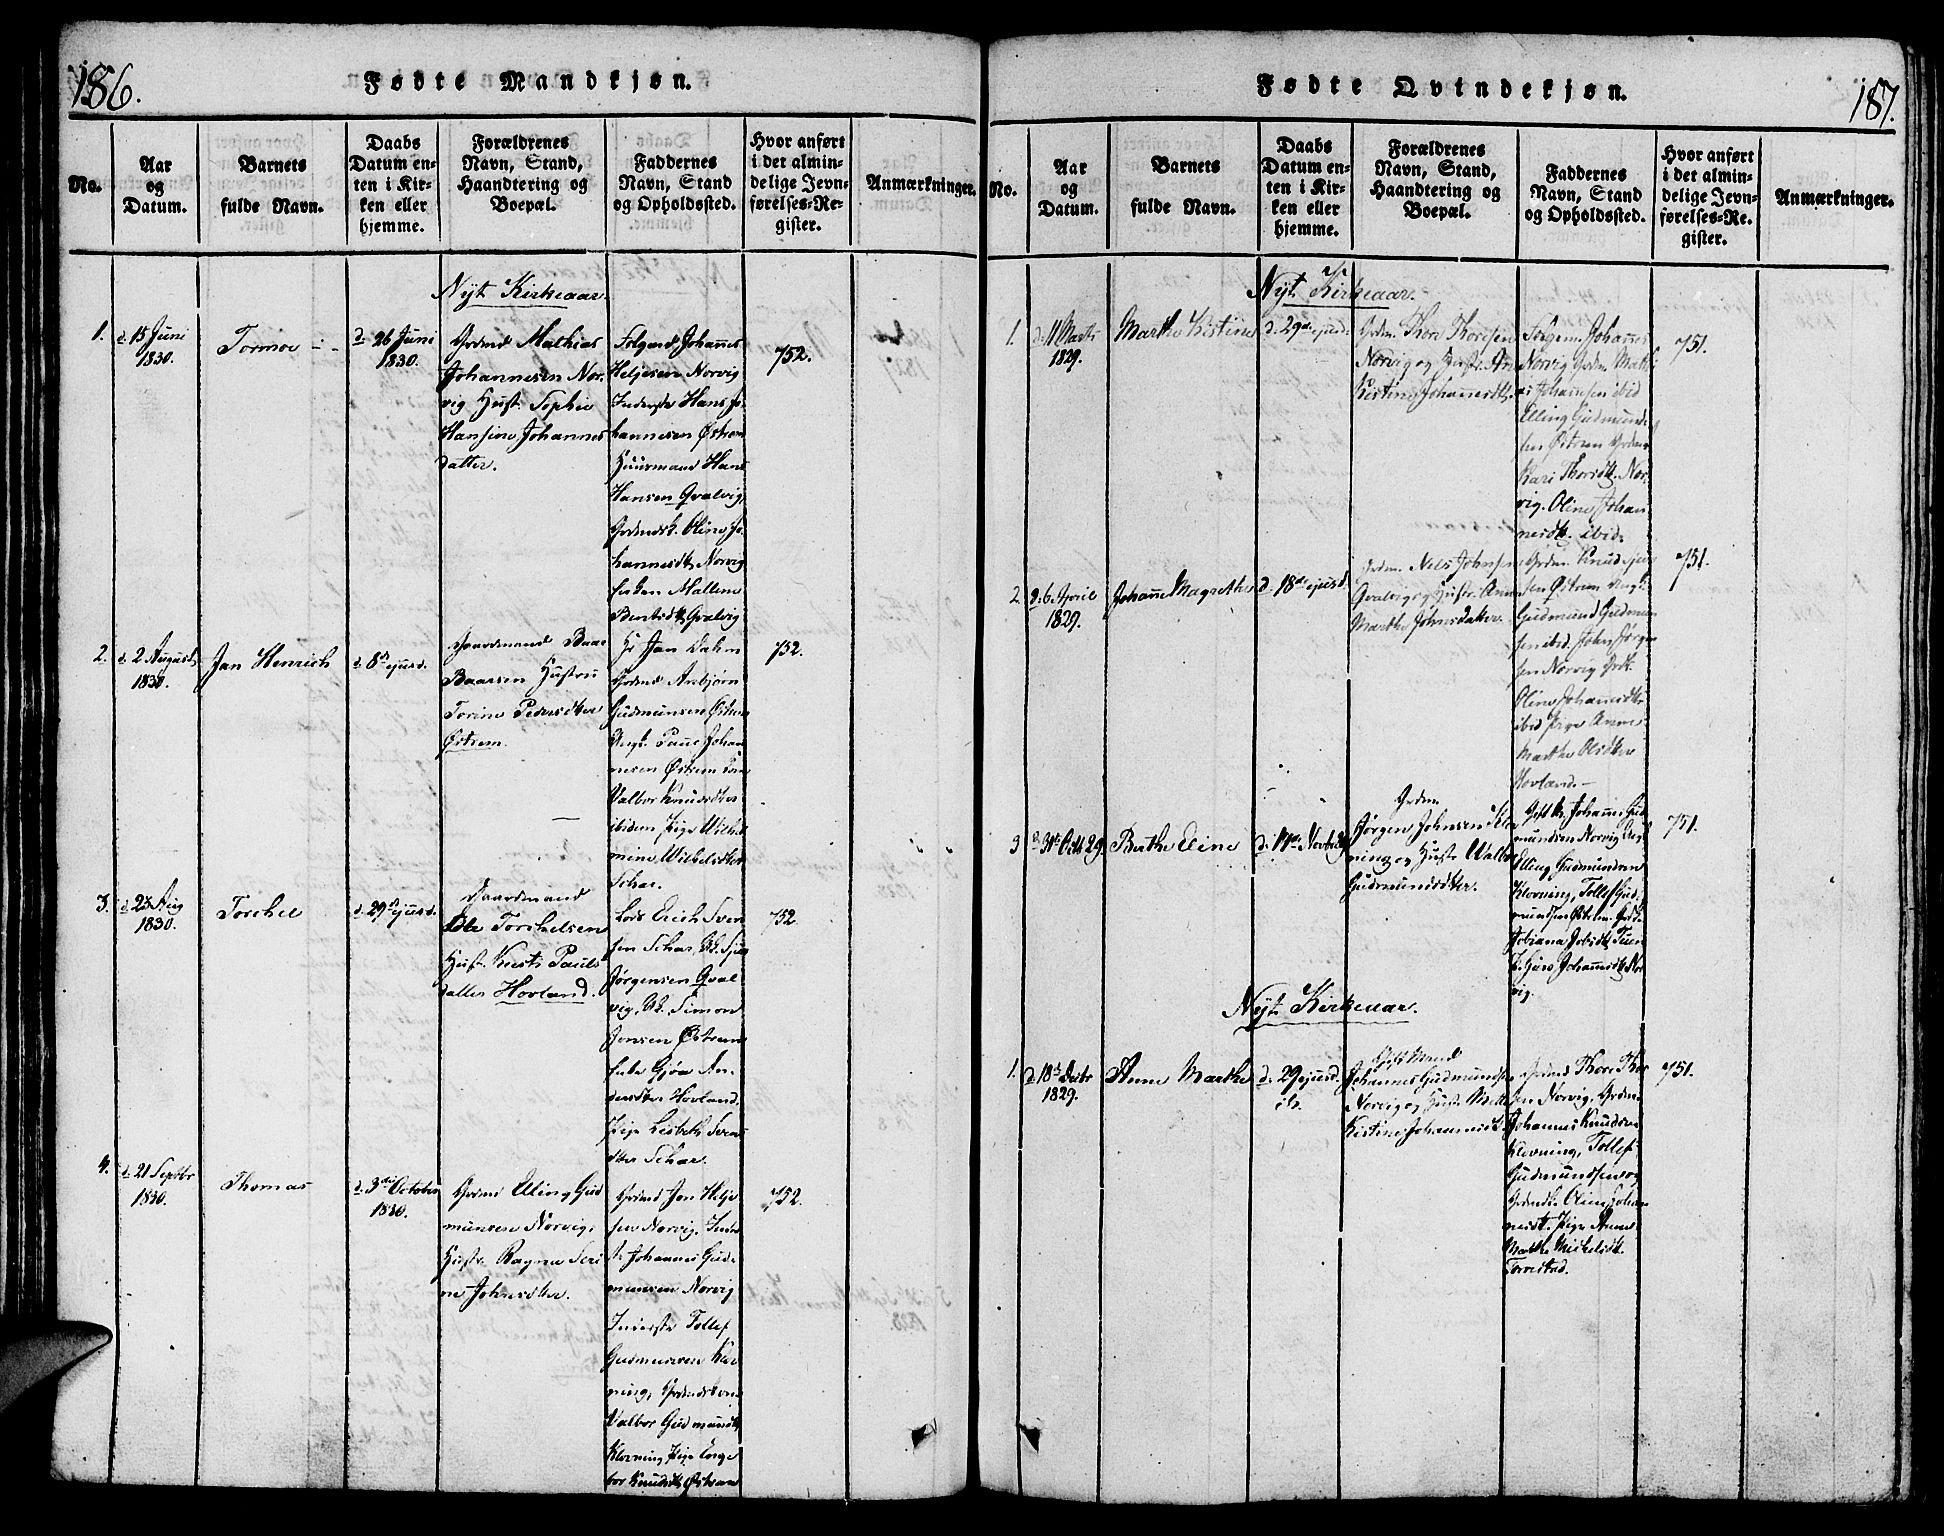 186.
Fødte Mandkjøn.
No.
Aar
og
Datum.
Barnets
fulde Navn.
Daabs
Datum en-
ten i Kir-
ken eller
hjemme.
Forældrenes
Navn, Stand,
Haandtering og
Boepæl.
Faddernes
Navn, Stand
og Opholdssted.
Hvor anført
i det almin-
delige Jevn-
førelses-Re-
gister.
Anmærkninger.
Nyt Kirkeaar.
1.
d. 15 Juni
1830.
Tormoe
d. 26 Juni
1830.
Grdmd Mathias
Johannesen Nor-
vig Hust. Sophie
Hansine Johannes
datter.
Johannes
Heljesen Norvig
Inderste Hans Jo-
hannesen Østrem
Huusmand Hans
Hansen Qvalvig,
Oline Jo-
hannesdtr Norvig
Mallene
Bentsdtr Qvalvig
752.
2.
d. 2 August
1830.
Jan Henrich
d. 8de ejusd.
Gaardmand Baar
Baarsen Hustru
Torine Pedersdtter
Østrem.
Hr Jan Dahm
Grdmd Anbjørn
Gudmunsen Østrem
Ungk. Paul Johan-
nesen Østrem
Valbor Knudsdtter
ibidem Pige Wilhel-
mine Wilhelsdtter
Schar.
752.
3.
d. 23 Aug
1830.
Torchel
d. 29de ejusd.
Gaardmand
Ole Torchelsen
Hust. Pauls
datter Hovland.
Lods Erich Sven
sen Schar,
Jørgensen Qval
vig, Simon
Jonsen Østrem
Gjøa An-
dersdtter Hovland.
Pige Lisbeth Svens
dtter Schar.
752
4.
d. 21 Septbr
1830.
Thomas
d. 3die October
1830.
Grdmd Elling Gud
munsen Norvig,
Hustr. Ragna Seri
ne Johnsdtter.
Grdmd Jon Helje
sen Norvig, Inder
st. Johannes Gud-
munsen Norvig
Inderste Tollef
Gudmunsen Klov
ning,
Valbor Gudmundsdtr
Klovning, Pige Inge
bor Knudsdtr Østrem
752.
187.
Fødte Qvindekjøn.
No.
Aar
og
Datum.
Barnets
fulde Navn.
Daabs
Datum en-
ten i Kir-
ken eller
hjemme.
Forældrenes
Navn, Stand,
Haandtering og
Boepæl.
Faddernes
Navn, Stand
og Opholdssted.
Hvor anført
i det almin-
delige Jevn-
førelses-Re-
gister.
Anmærkninger.
Nyt Kirkeaar.
1.
d. 11 Marts
1829.
Marthe Kistine
d. 29de ejusd.
Grdm. Thore Thoresen
Norvig og Hustr. Ane
Kistine Johannesdtr.
Johannes
Norvig Grdm. Mathi
as Johannsen ibid
Elling Gudmund-
sen Østrem
Kari Thorsdtr. Nor-
vig. Oline Johan
nesdtr. ibid.
751.
2.
d. 6 April
1829.
Johanne Magrethe
d. 18de ejusd.
Grdm. Nels Johnsen
Qvalvig og Hustr. Anne
Marthe Johnsdatter.
Grdm. Knud
sen Østrem Ungk.
Gudmund Gudmun
sen ibd. John Jørgen
sen Norvig
Oline Johannesdtr
ibid Pige Anne
Marthe Olsdtter
Hovland.
751.
3
d. 31te Octb 29.
Berthe Eline
d. 11te Novbr 29
Grdm.
Jørgen Johnsen Klov
ning og Hustr. Walbor
Gudmundsdtter.
Johannes Gud
mundsen Norvig,
Elling Gudmundsen
Klovning, Tollef Gud
mundsen Østrem.
Johannesdtr Nor
vig.
751.
Nyt Kirkeaar.
1.
d. 18de Decbr
1829.
Anne Marthe
d. 29 ejusd.
Gift Mand
Johannes Gudmundsen
Norvig og Hustr. Mette
Kistine Johannesdtr.
Grdmd Thore Thor
sen Norvig, Grdm.
Johannes Knudsen
Klovning, Tollef
Gudmundsen og
Oline Johan
nesdt. Pige Anne
Marthe Michelsdt.
Torvestad.
751.